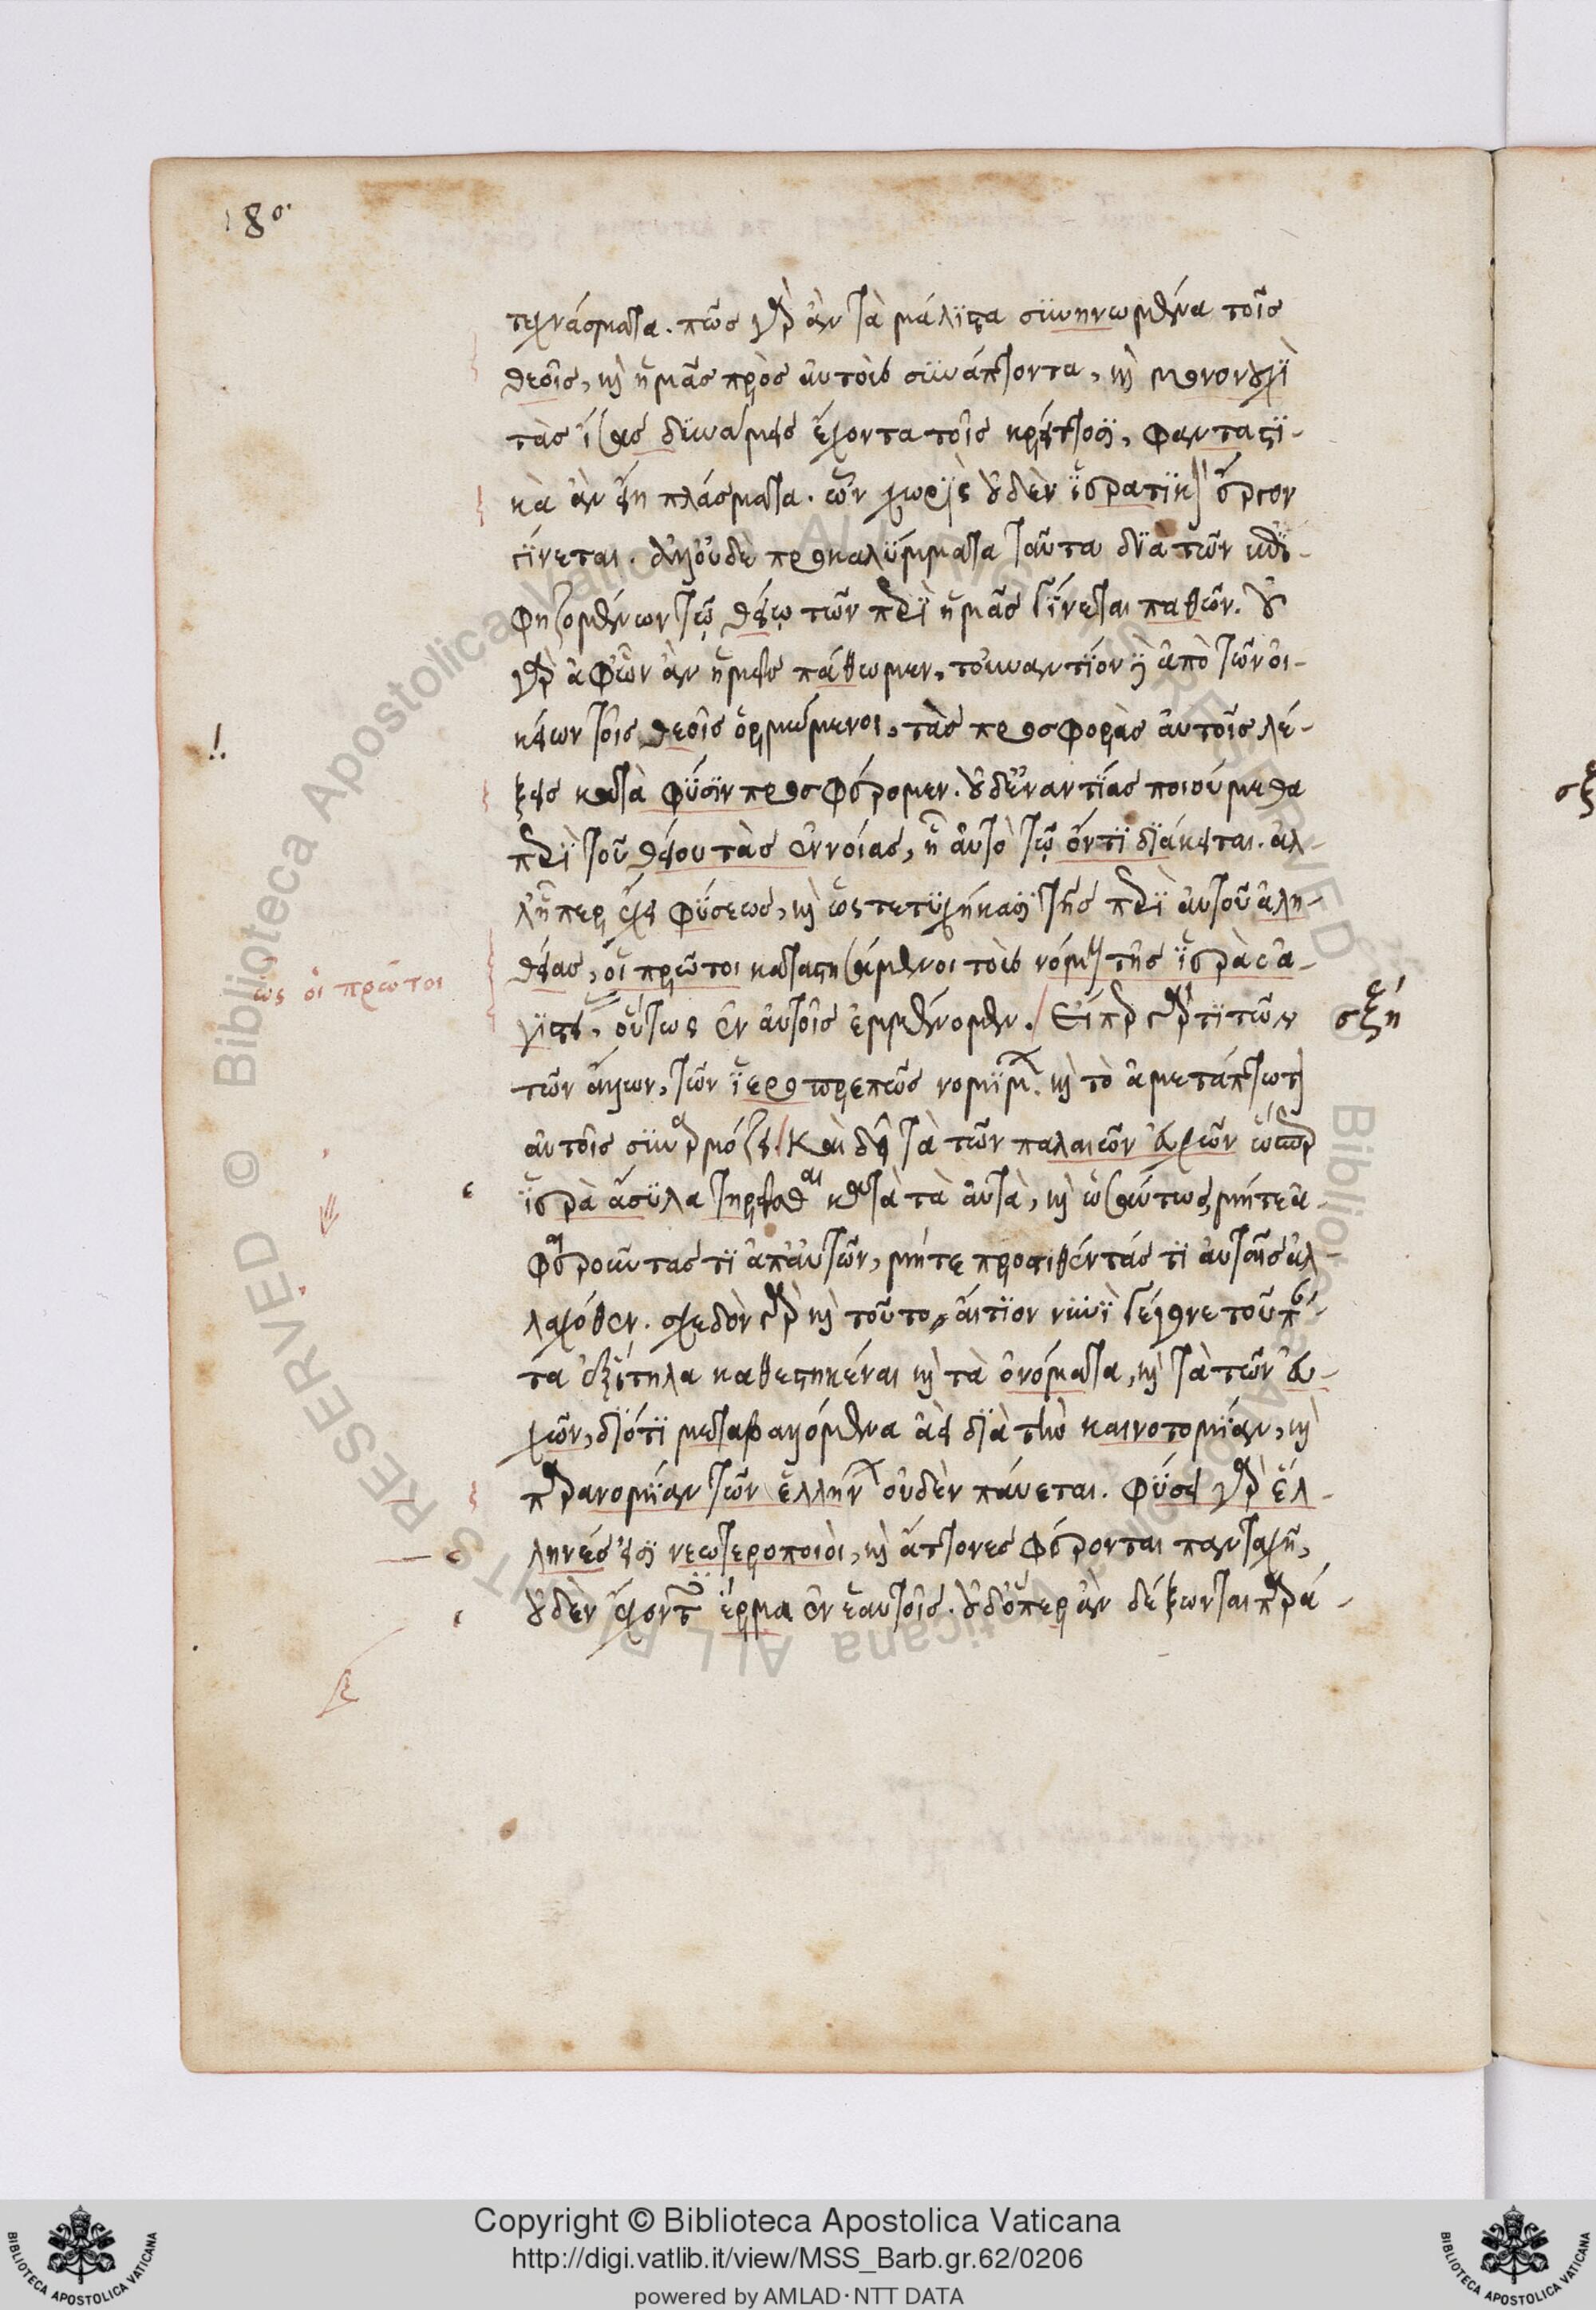 180.
τεχνάσματα. πῶς γὰρ ἂν τὰ μάλιστα συνηνωμένα τοῖς
θεοῖς, καὶ ἡμᾶς πρὸς αὐτοὺς συνάπτοντα, καὶ μονονουχὶ
τὰς ἴσας δυνάμεις ἔχοντα τοῖς κρείττοσι, φανταστι-
κὰ ἂν εἴη πλάσματα. ὧν χωρὶς οὐδὲν ἱερατικὸν ἔργον
γίνεται. ἀλλ' οὐδὲ προκαλύμματα ταῦτα διὰ τῶν ἐπι-
φημιζομένων τῷ θείῳ τῶν περὶ ἡμᾶς γίνεται παθῶν. οὐ
γὰρ ἀφ' ὧν ἂν ἡμεῖς πάθωμεν, τοὐναντίον δὲ ἀπὸ τῶν οἰ-
κείων τοῖς θεοῖς ὁρμώμενοι, τὰς προσφορὰς αὐτοῖς λέ-
ξεις κατὰ φύσιν προσφέρομεν. οὐδ' ἐναντίας ποιούμεθα
περὶ τοῦ θείου τὰς ἐννοίας, ἢ αὐτὸ τῷ ὄντι διάκειται. ἀλ-
λ' ᾗπερ ἔχει φύσεως, καὶ ὡς τετυχήκασι τῆς περὶ αὐτοῦ ἀλη-
θείας, οἱ πρῶτοι καταστησάμενοι τοὺς νόμους τῆς ἱερᾶς ἁ-
γιστείας, οὕτως ἐν αὐτοῖς ἐμμένομεν. Εἴπερ γάρ τι τῶν σξη
τῶν ἄλλων, τῶν ἱεροπρεπῶς νομίμων. καὶ τὸ ἀμετάπτωτον
αὐτοῖς συναρμόζει. Καὶ δεῖ τὰ τῶν παλαιῶν εὐχῶν ὥσπερ
ἱερὰ ἄσυλα τηρεῖσθαι κατὰ τὰ αὐτὰ, καὶ ὡσαύτως, μήτε ἀ-
φαιροῦντας τι ἀπ' αὐτῶν, μήτε προστιθέντάς τι αὐταῖς ἀλ-
λαχόθεν. σχεδὸν γὰρ καὶ τοῦτο αἴτιον νυνὶ γέγονε τοῦ πάν-
τα ἐξίτηλα καθεστηκέναι καὶ τὰ ὀνόματα, καὶ τὰ τῶν εὐ-
χῶν, διότι μεταβαλλόμενα ἀεὶ διὰ τὴν καινοτομίαν, καὶ
παρανομίαν τῶν ἑλλήνων οὐδὲν παύεται. φύσει γὰρ ἕλ-
ληνές εἰσι νεωτεροποιοὶ, καὶ ἄττοντες φέρονται πανταχῇ,
οὐδὲν ἔχοντες ἕρμα ἐν ἑαυτοῖς. οὐδ' ὅπερ ἂν δέξωνται παρά
ὡς οἱ πρῶτοι
Copyright © Biblioteca Apostolica Vaticana
http://digi.vatlib.it/view/MSS_Barb.gr.62/0206
powered by AMLAD·NTT DATA